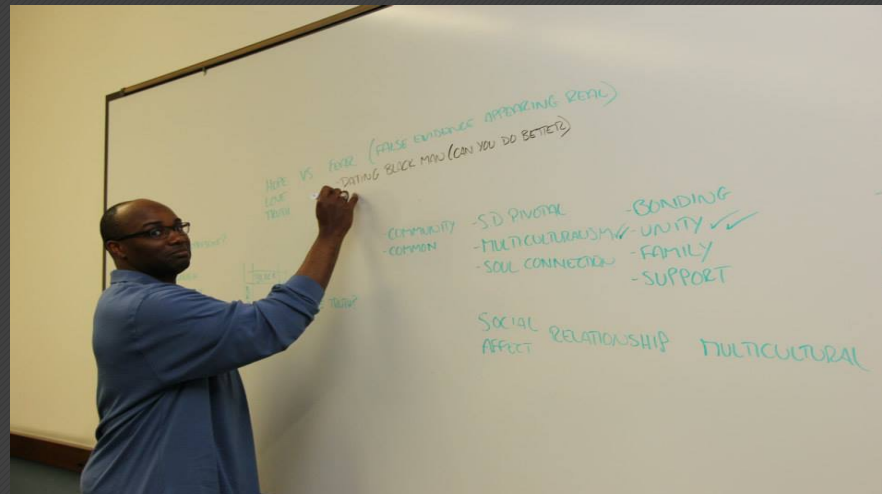 HOPE VS FEAR (FALSE EVIDENCE APPEARING REAL)
LOVE - DATING BLACK MAN (CAN YOU DO BETTER)
TRUTH
COMMUNITY
- COMMON
- S.D PIVOTAL
- MULTICULTURALISM ✓
- SOUL CONNECTION
- BONDING
- UNITY ✓✓
- FAMILY
- SUPPORT
SOCIAL
AFFECT
RELATIONSHIP
MULTICULTURAL